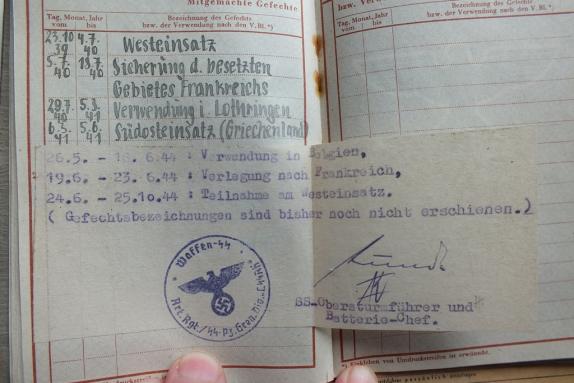 Mitgemachte Gefechte
Tag, Monat, Jahr
vom bis
Bezeichnung des Gefechts
bzw. der Verwendung nach den V. Bl. *)
23.10 39 4.7. 40 Westeinsatz
5.7. 40 40 Sicherung d. besetzten
Gebietes Frankreichs
29.7. 40 5.3. 41 Verwendung i. Lothringen
6.3. 41 5.6. 41 Südosteinsatz (Griechenland)
26.5. - 18.6.44 : Verwendung in Belgien,
19.6. - 23.6.44 : Verlegung nach Frankreich,
24.6. - 25.10.44 : Teilnahme am Westeinsatz.
( Gefechtsbezeichnungen sind bisher noch nicht erschienen.)
Waffen-SS
SS-Obersturmführer und
Batterie-Chef.
Tag, Monat, Jahr
vom bis
Bezeichnung des Gefechts
bzw. der Verwendung nach den V. Bl. *)
*) Einkleben von Umdruckstreifen ist erwünscht.